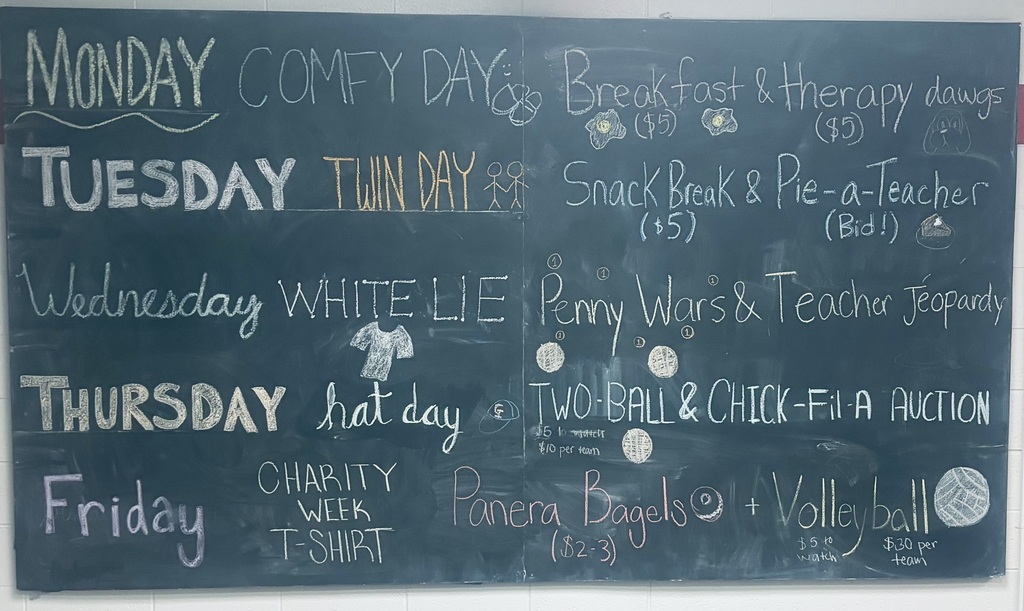 MONDAY COMFY DAY Breakfast & therapy dawgs
($5) ($5)
TUESDAY TWIN DAY Snack Break & Pie-a-Teacher
($5) (Bid!)
Wednesday WHITE LIE Penny Wars & Teacher Jeopardy
THURSDAY hat day TWO-BALL & CHICK-Fil-A AUCTION
$5 to watch
$10 per team
Friday CHARITY WEEK T-SHIRT Panera Bagels + Volleyball
($2-3) $5 to watch $30 per team